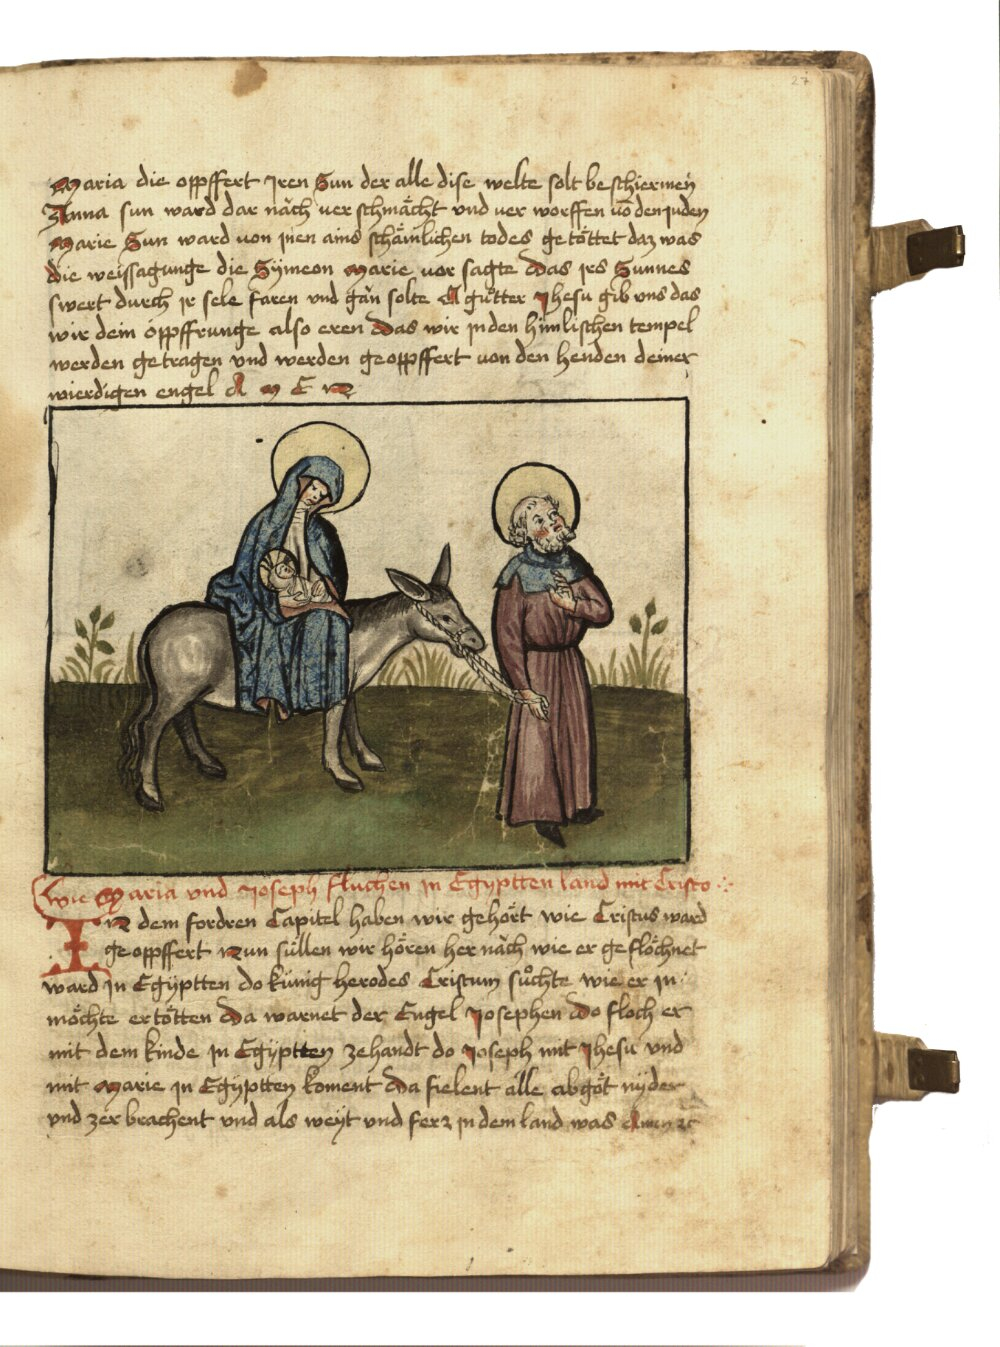 27
Maria die oppffert Jren Sun der alle dise welte solt beschiermen
Anna sun ward dar näch verschmächt vnd ver worffen võ den juden
Marie Sun ward von jnen ains schämlichen todes getöttet daz was
die weissagunge die Sÿmeon Marie vor sagte Das jrs Sunnes
swert durch jr sele faren vnd gän solte A gůtter Jhesu gib vns das
wir dem oppffrunge also eren Das wir jn den himlischen tempel
werden getragen vnd werden geoppffert von den henden deiner
wierdigen engel A M E N
wie Maria vnd Joseph fluchen jn Egyptten land mit Cristo
IN dem fordren Capitel haben wir gehört wie Cristus ward
geoppffert Nun süllen wir hören her näch wie er geflöchnet
ward jn Egÿptten do künig herodes Cristum sůchte wie er jn
möchte ertötten Da warnet der Engel Josephen Do floch er
mit dem kinde jn Egÿptten zehandt do Joseph mit Jhesu vnd
mit Marie jn Egÿptten koment Da fielent alle abgöt nÿder
vnd zerbrachent vnd als weÿt vnd ferr jn dem land was